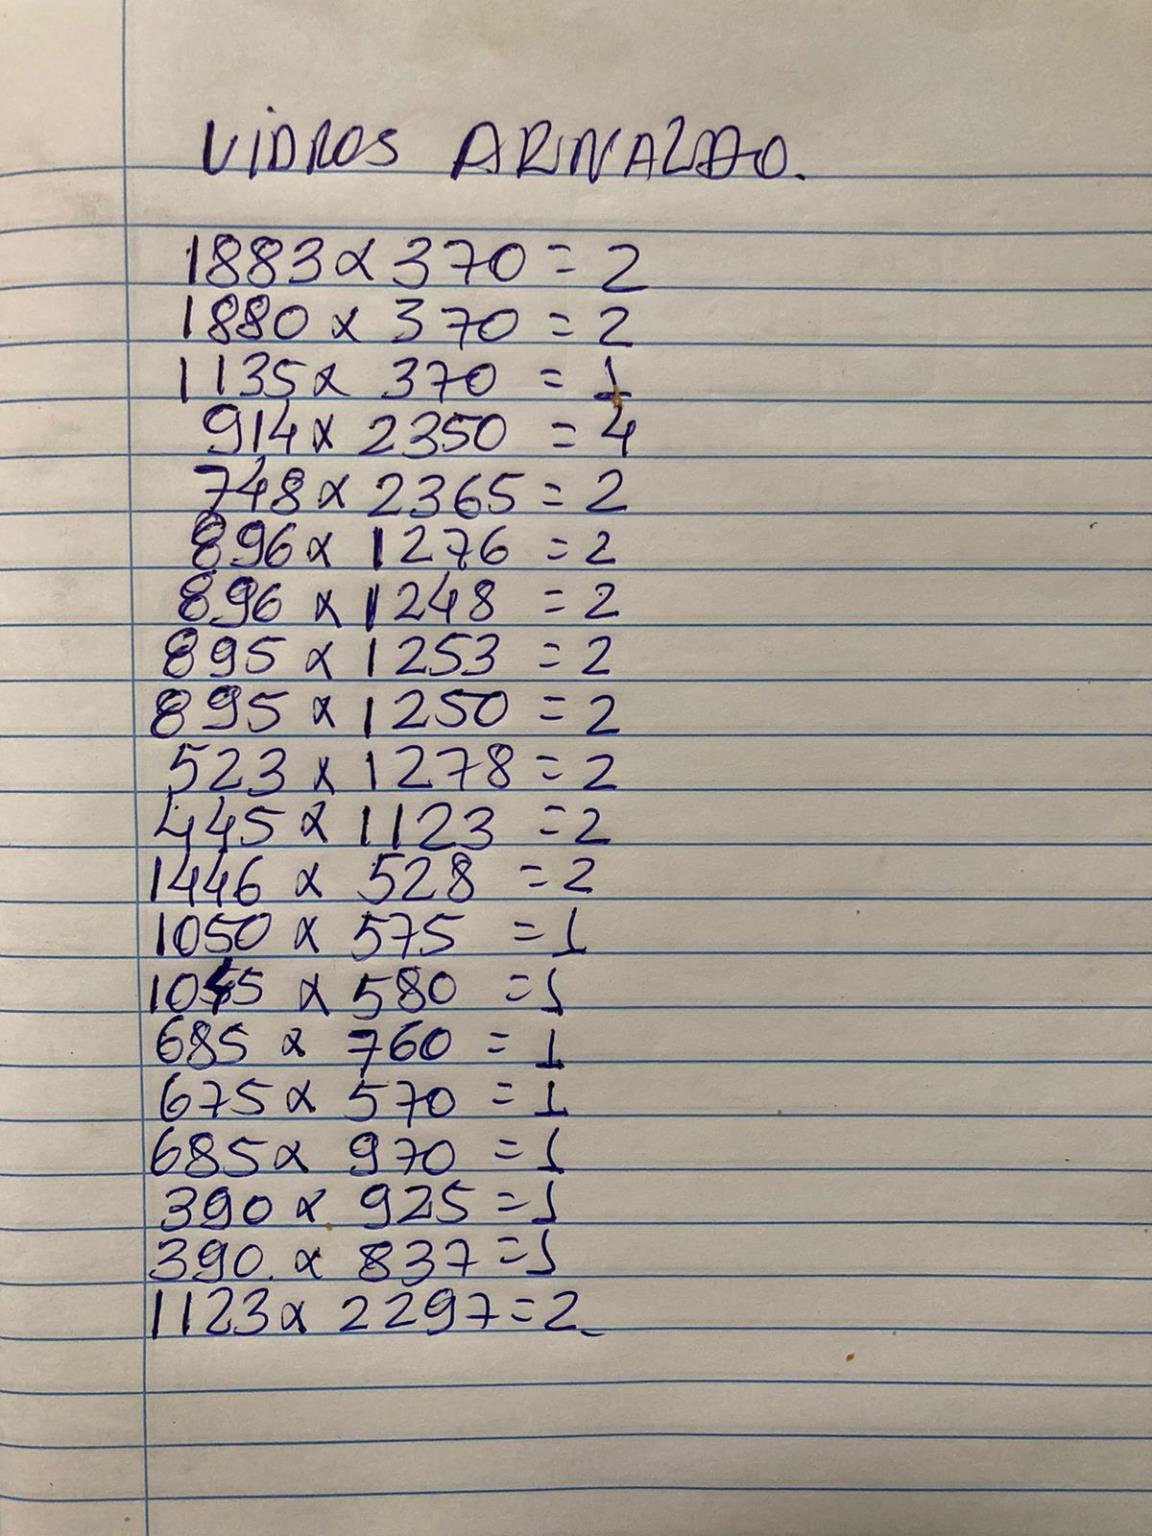 VIDROS ARINALDO.
1883 x 370 = 2
1880 x 370 = 2
1135 x 370 = 1
914 x 2350 = 4
748 x 2365 = 2
896 x 1276 = 2
896 x 1248 = 2
895 x 1253 = 2
895 x 1250 = 2
523 x 1278 = 2
445 x 1123 = 2
1446 x 528 = 2
1050 x 575 = 1
1045 x 580 = 1
685 x 760 = 1
675 x 570 = 1
685 x 970 = 1
390 x 925 = 1
390 x 837 = 1
1123 x 2297 = 2